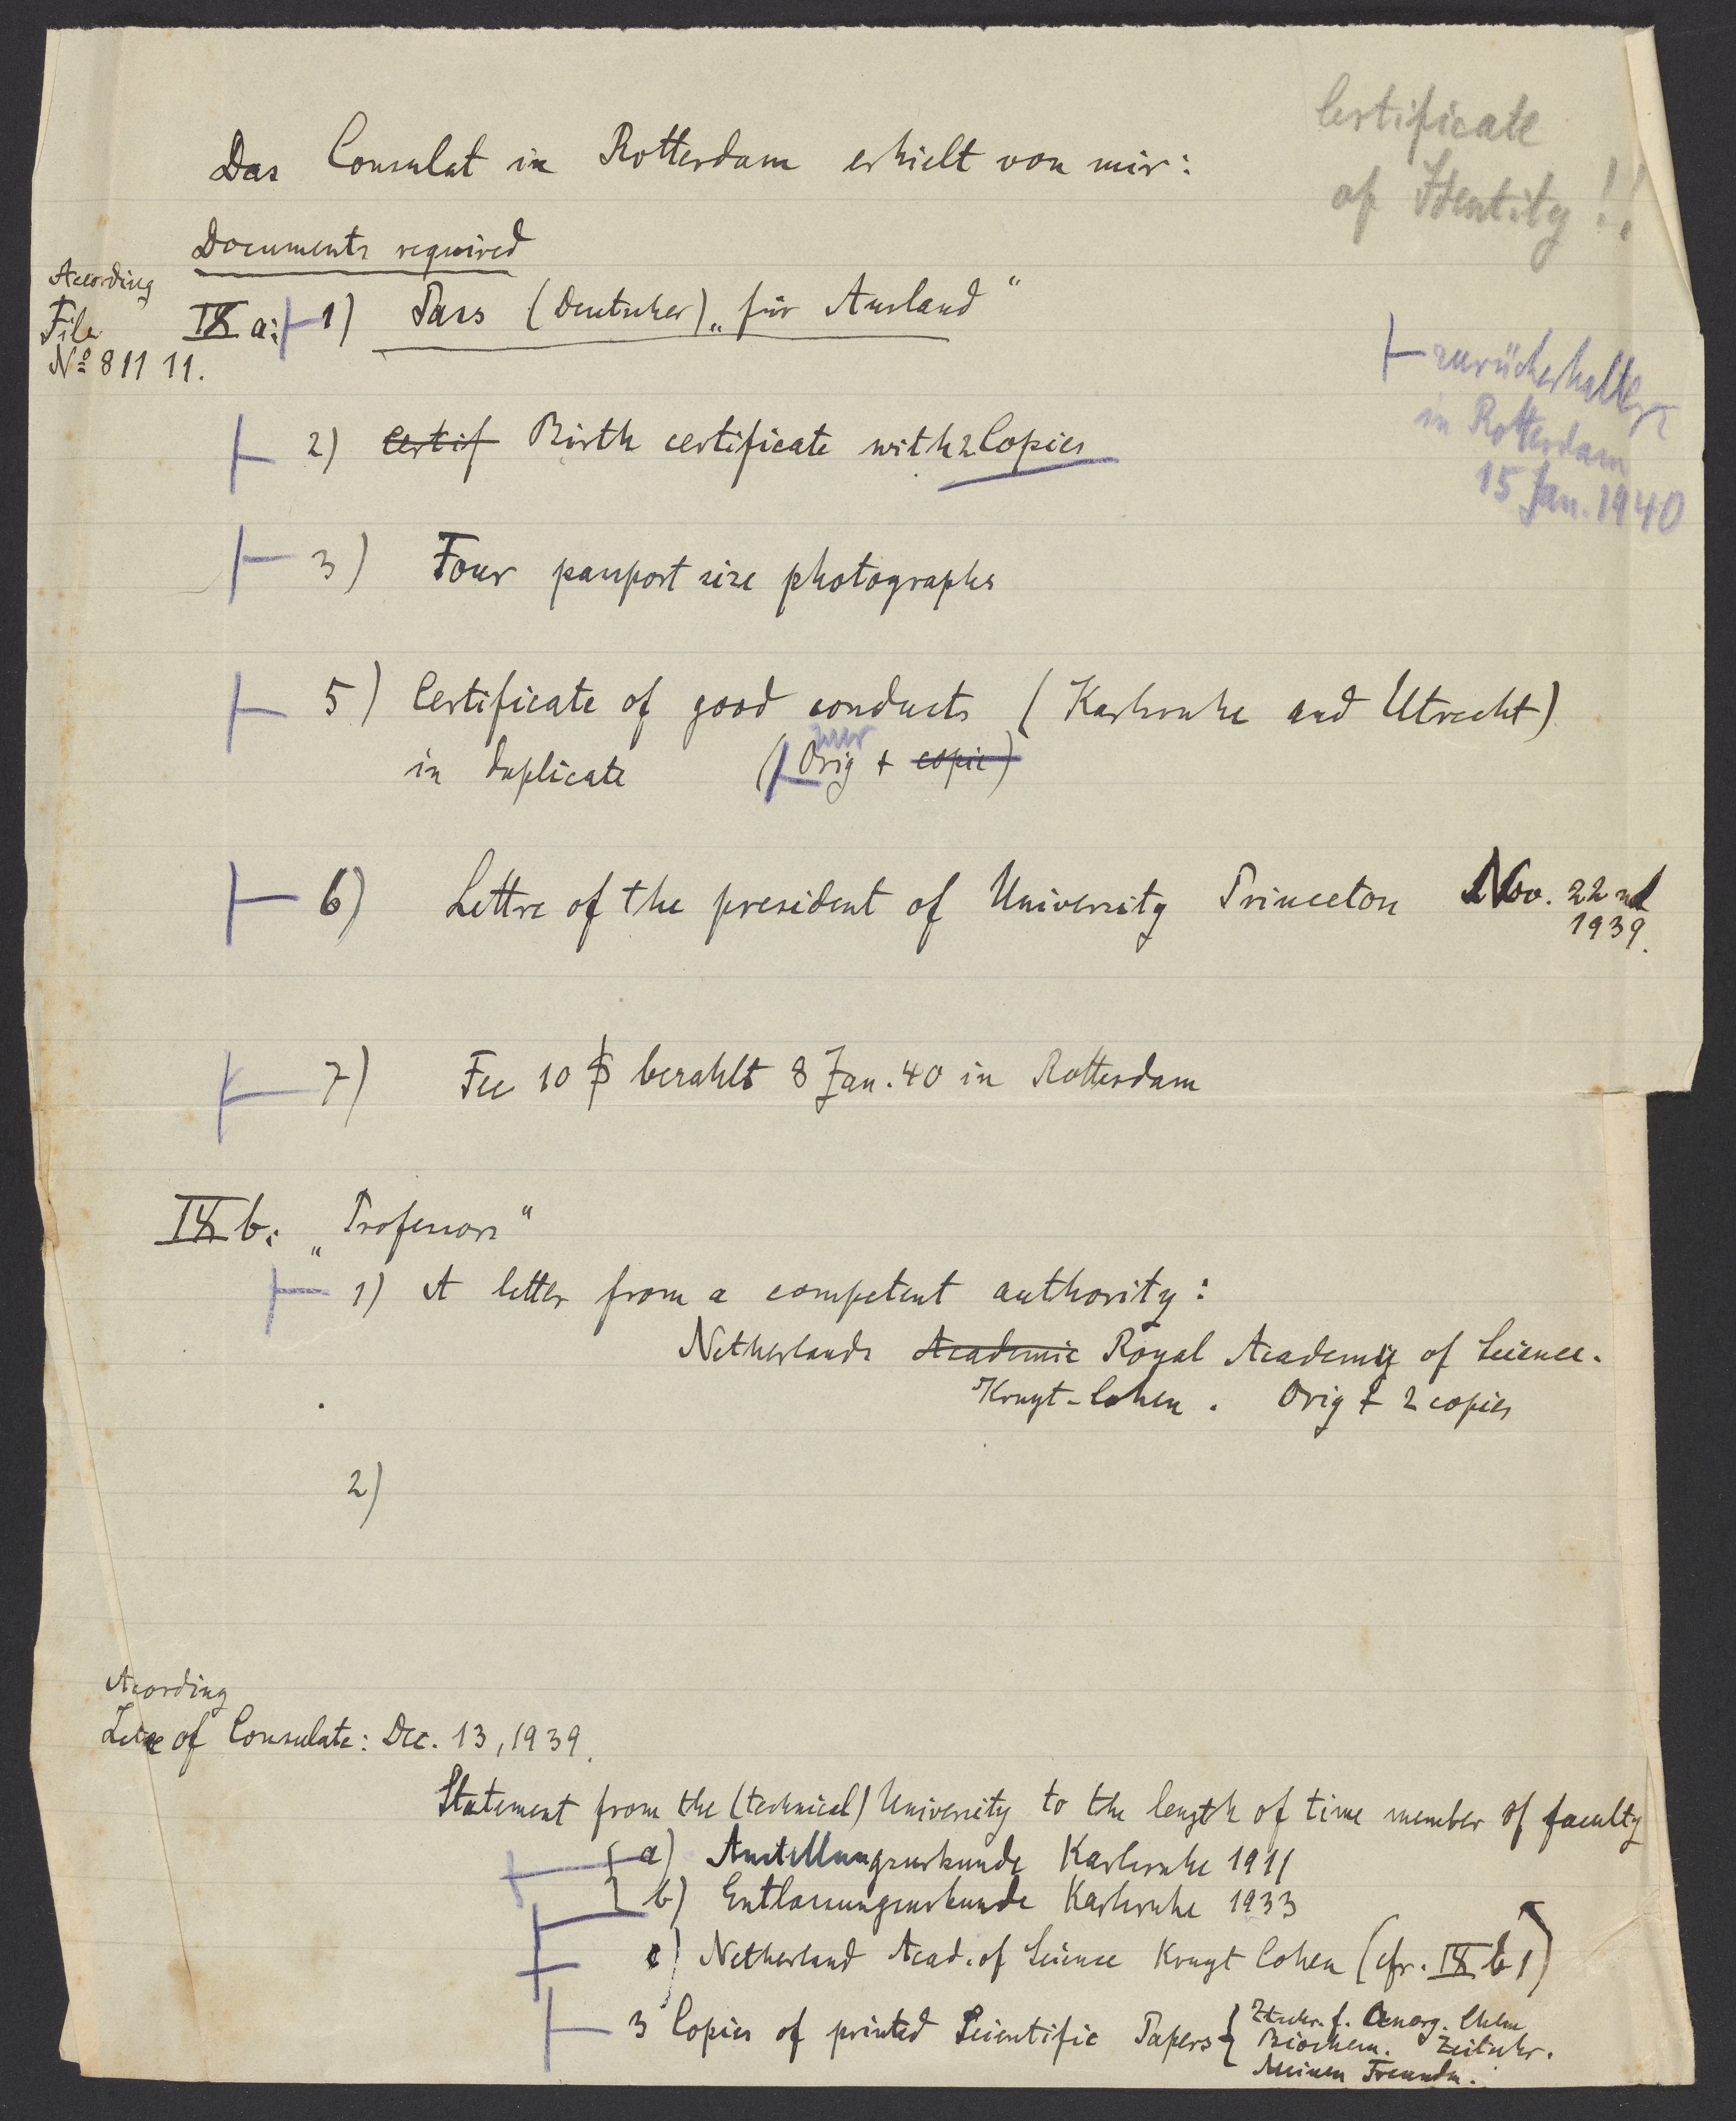 Certificate
of Identity!!
Das Consulat in Rotterdam erhielt von mir:
Documents required
Acording
File
Nº 811 11.
IX a: 1) Pass (Deutscher) „für Ausland“
⊢ zurückerhalten
in Rotterdam
15 Jan. 1940
2) Certif Birth certificate with 2 Copies
3) Four passport size photographs
5) Certificate of good conducts (Karlsruhe and Utrecht)
in duplicate (Orig + copie)
6) Lettre of the president of University Princeton Nov. 22nd
1939.
7) Fee 10 $ bezahlt 8 Jan. 40 in Rotterdam
IX b: „Professors“
1) A letter from a competent authority:
Netherlands Academie Royal Academy of Science.
Kruyt-Cohen. Orig + 2 copies
2)
Acording
of Consulate: Dec. 13, 1939.
Statement from the (technical) University to the length of time member of faculty
a) Anstellungsurkunde Karlsruhe 1911
b) Entlassungsurkunde Karlsruhe 1933
c) Netherland Acad. of Science Kruyt Cohen (cfr. IX b 1)
3 Copies of printed Scientific Papers { Ztschr. f. Anorg. Chem
Biochem. Zeitschr.
Meinen Freunden.